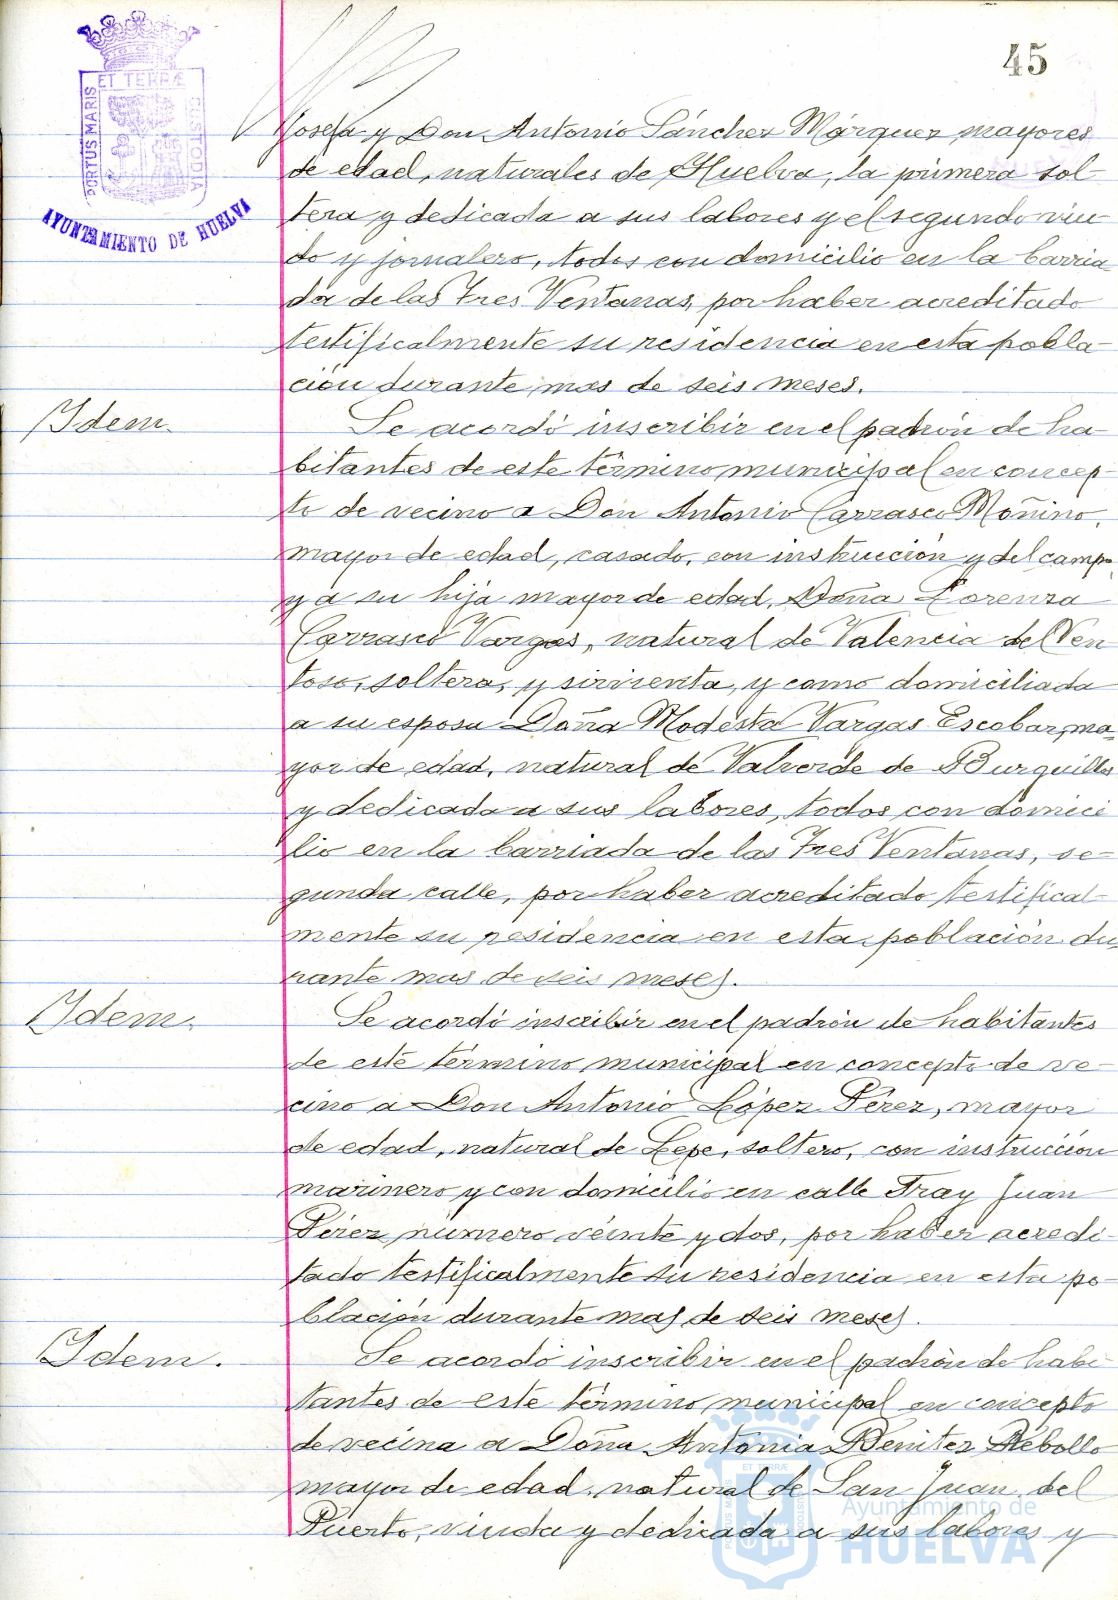 45
PORTUS MARIS
ET TERRÆ
CUSTODIA
AYUNTAMIENTO DE HUELVA
Josefa y Don Antonio Sánchez Márquez mayores
de edad, naturales de Huelva, la primera sol-
tera y dedicada a sus labores y el segundo viu-
do y jornalero, todos con domicilio en la barria
da de las Tres Ventanas, por haber acreditado
testificalmente su residencia en esta pobla-
ción durante mas de seis meses.
Idem.
Se acordó inscribir en el padrón de ha-
bitantes de este término municipal en concep-
to de vecino a Don Antonio Carrasco Moñino,
mayor de edad, casado, con instrucción y del campo
y a su hija mayor de edad, Doña Lorenza
Carrasco Vargas, natural de Valencia del Ven
toso, soltera, y sirvienta, y como domiciliada
a su esposa Doña Modesta Vargas Escobar, ma-
yor de edad, natural de Valverde de Burguillos
y dedicada a sus labores, todos con domici
lio en la barriada de las Tres Ventanas, se-
gunda calle, por haber acreditado testifical-
mente su residencia en esta población du-
rante mas de seis meses.
Idem.
Se acordó inscribir en el padrón de habitantes
de este término municipal en concepto de ve-
cino a Don Antonio López Pérez, mayor
de edad, natural de Lepe, soltero, con instrucción
marinero y con domicilio en calle Fray Juan
Pérez número veinte y dos, por haber acredi-
tado testificalmente su residencia en esta po-
blación durante mas de seis meses.
Idem.
Se acordó inscribir en el padrón de habi
tantes de este término municipal en concepto
de vecina a Doña Antonia Benitez Rebollo
mayor de edad, natural de San Juan del
Puerto, viuda y dedicada a sus labores y
PORTUS MARIS
ET TERRÆ
CUSTODIA
Ayuntamiento de
HUELVA